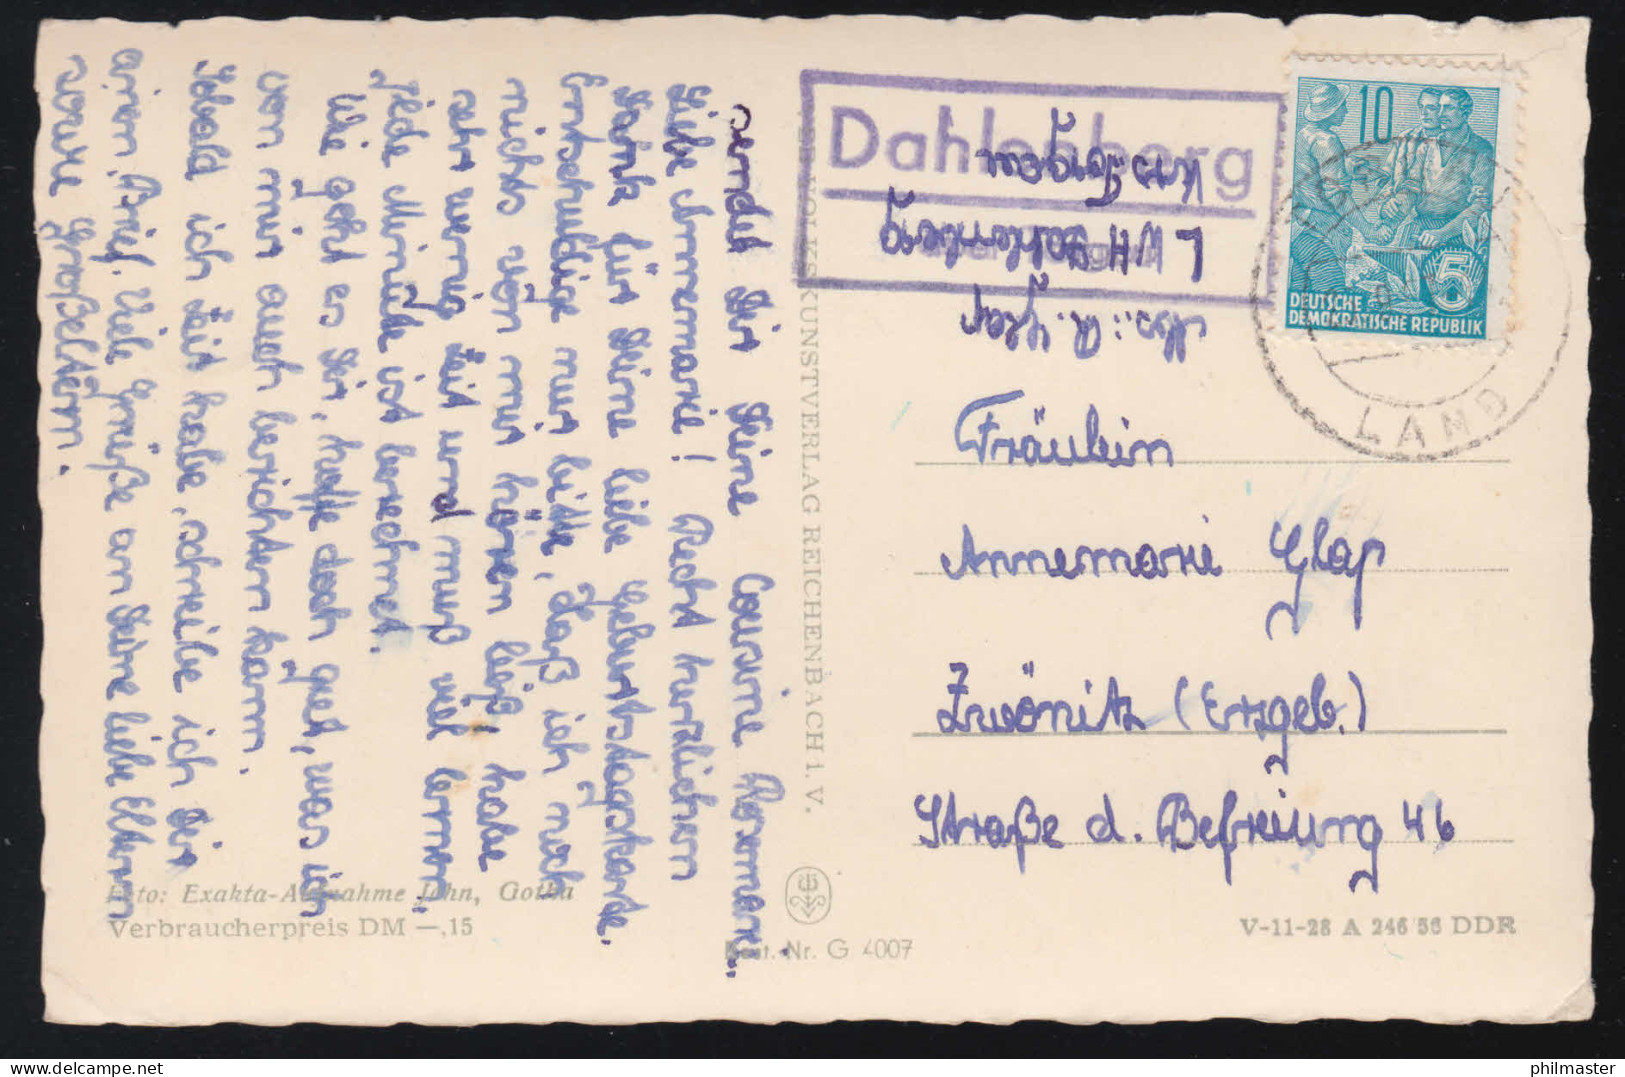 Liebe Annemarie! Recht herzlichen
Dank für Deine liebe Geburtstagskarte.
Entschuldige nur bitte, daß ich noch
nichts von mir hören ließ! habe
sehr wenig Zeit und muß viel lernen,
jede Minute ist berechnet.
Wie geht es Dir, hoffe doch gut, was ich
von mir auch berichten kann.
Sobald ich Zeit habe, schreibe ich Dir
einen Brief. Viele Grüße an Deine liebe Eltern
sowie Großeltern.
sendet Dir Deine Cousine Rosemarie.
Foto: Exakta-Aufnahme John, Gotha
Verbraucherpreis DM —,15
VOLKSKUNSTVERLAG REICHENBACH i. V.
Best. Nr. G 4007
Dahlenberg
Abs.: R. Glap
LWH Dahlenberg
Krs. Torgau
10
5
DEUTSCHE
DEMOKRATISCHE REPUBLIK
LAND
Fräulein
Annemarie Glap
Zwönitz (Erzgeb.)
Straße d. Befreiung 46
V-11-28 A 246 56 DDR
philmaster